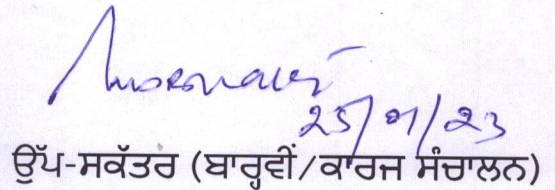 25/01/23
ਉੱਪ-ਸਕੱਤਰ (ਬਾਰ੍ਹਵੀਂ/ਕਾਰਜ ਸੰਚਾਲਨ)